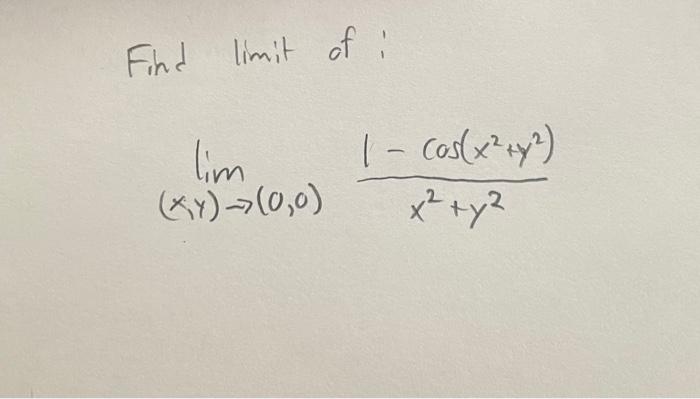 Find limit of :
lim (x,y)→(0,0) 1 - cos(x²+y²) / x²+y²